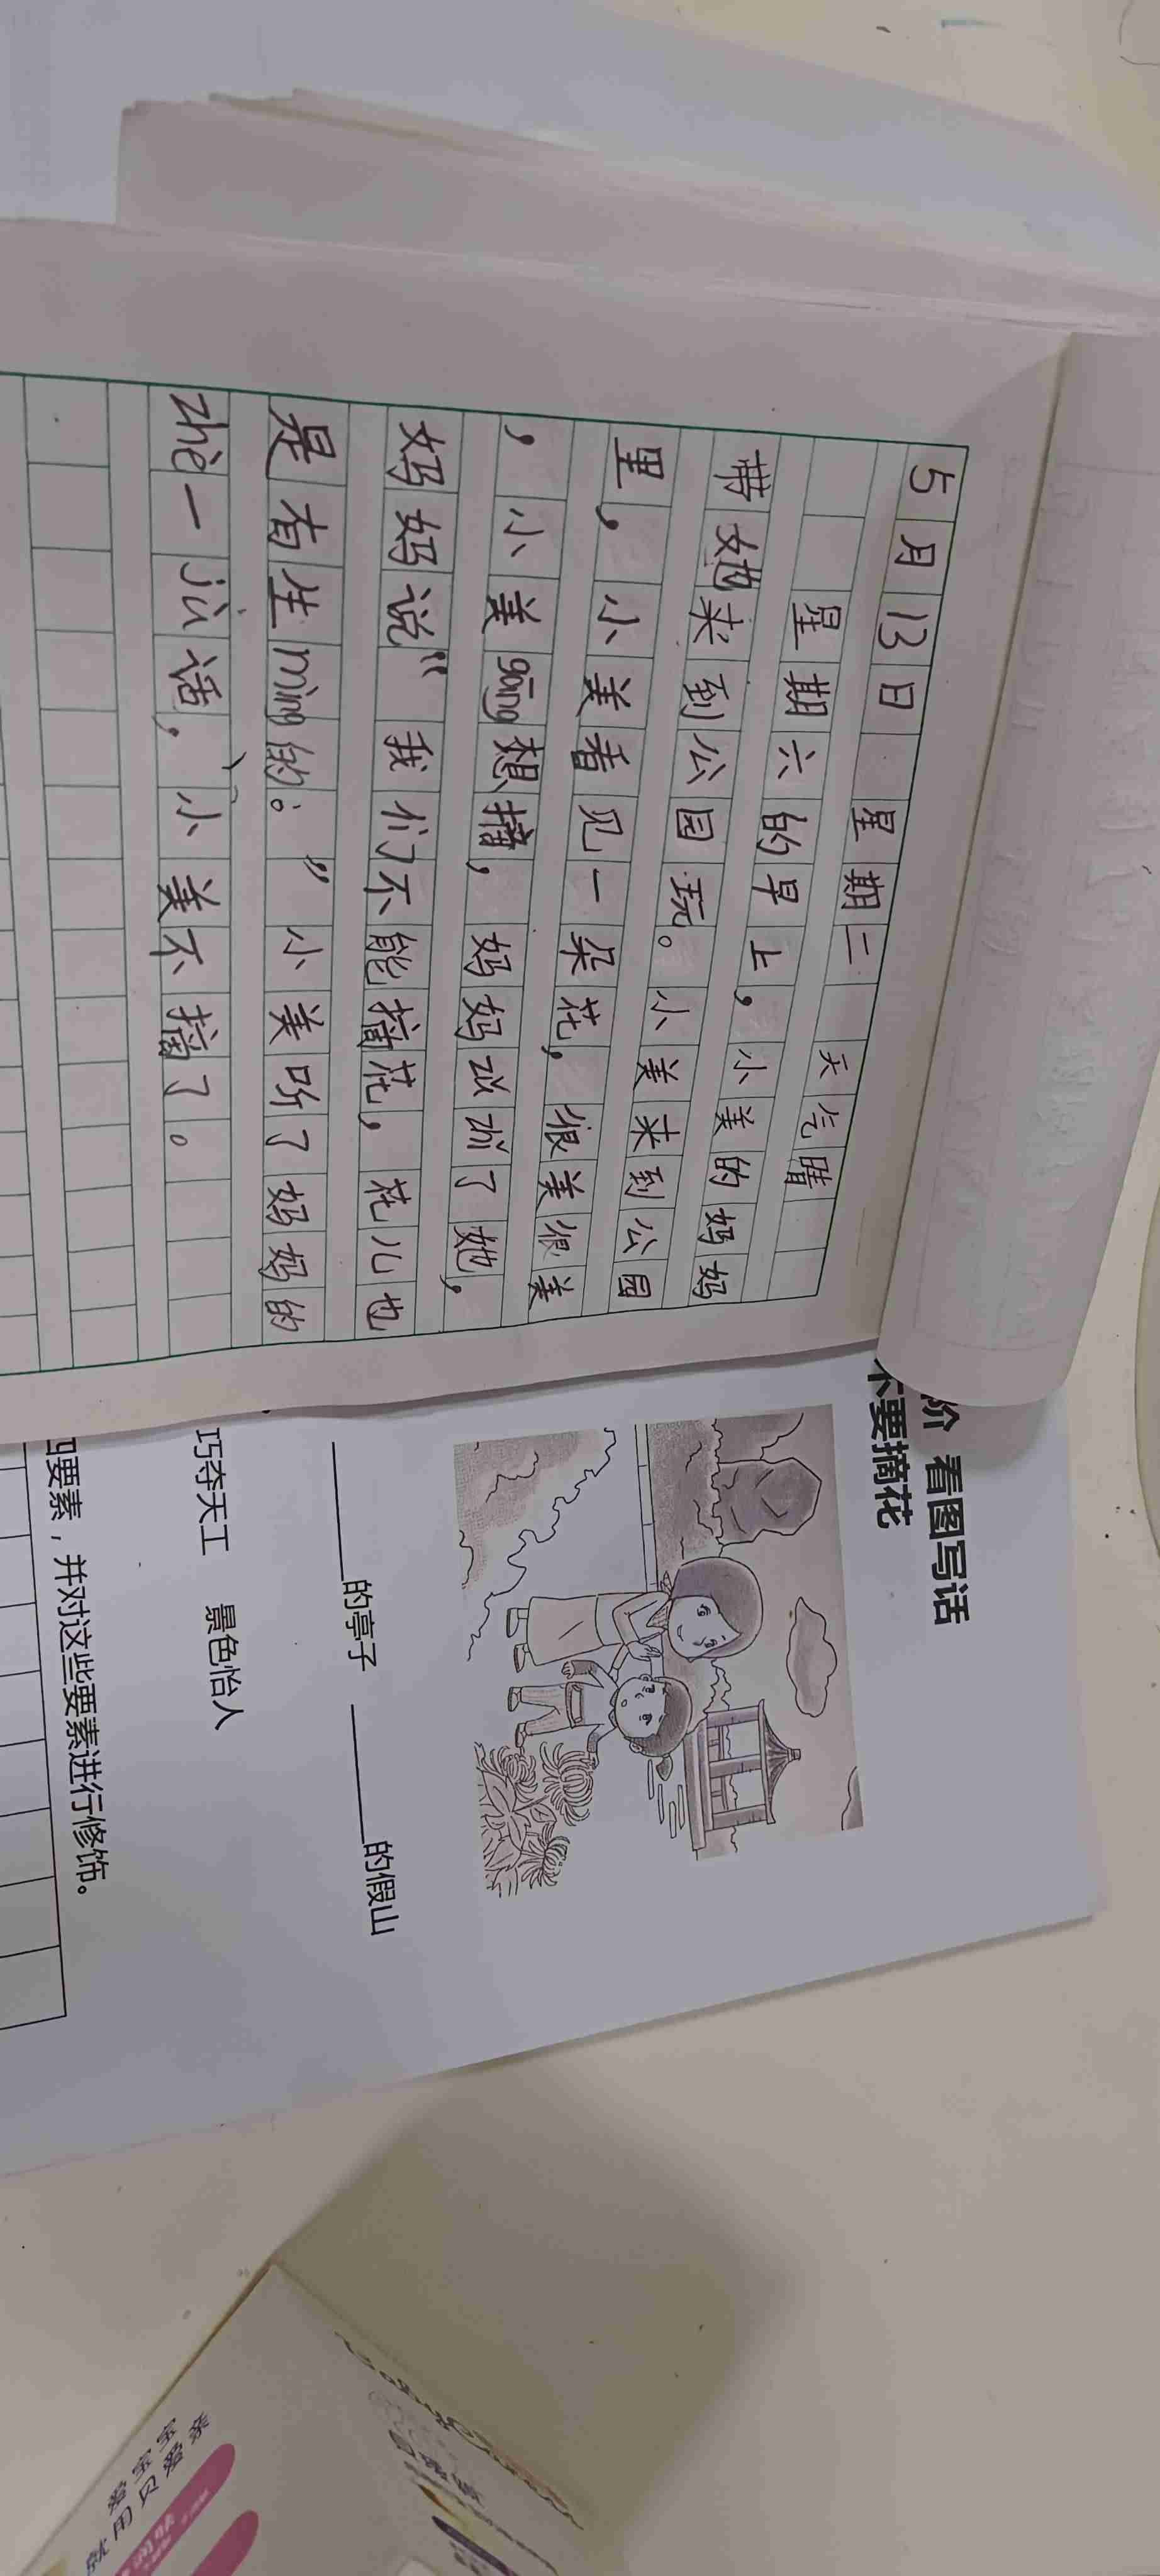 5月13日 星期二 天气晴
星期六的早上，小美的妈妈
带她来到公园玩。小美来到公园
里，小美看见一朵花，很美很美
，小美gāng想摘，妈妈以zhǐ了她，
妈妈说“我们不能摘花，花儿也
是有生mìng的：”小美听了妈妈的
zhè一jù话，小美不摘了。
阶 看图写话
不要摘花
的亭子 的假山
巧夺天工 景色怡人
四要素，并对这些要素进行修饰。
爱宝宝
就用贝爱亲